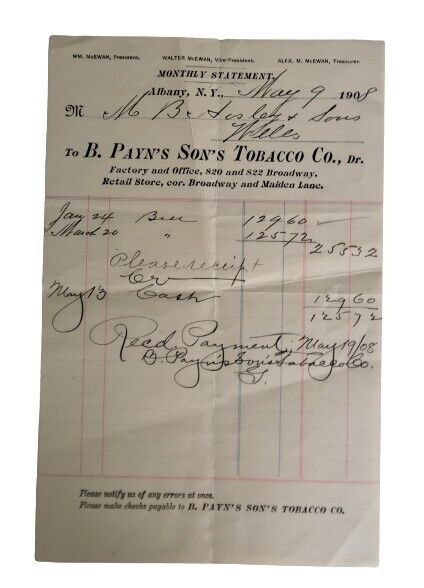 WM. McEWAN, President. WALTER McEWAN, Vice-President. ALEX. M. McEWAN, Treasurer.
MONTHLY STATEMENT.
Albany, N. Y., May 9 1908
M M B Hosley & Sons
Wells
To B. PAYN'S SON'S TOBACCO CO., Dr.
Factory and Office, 820 and 822 Broadway.
Retail Store, cor. Broadway and Maiden Lane.
Jan 24 Bill 129 60 —
March 20 " 125 72
255 32
Please receipt
Cr
May 13 Cash 129 60
125 72
Recd. Payment, May 19/08
B. Payn's Sons Tobacco Co.
Please notify us of any errors at once.
Please make checks payable to B. PAYN'S SON'S TOBACCO CO.